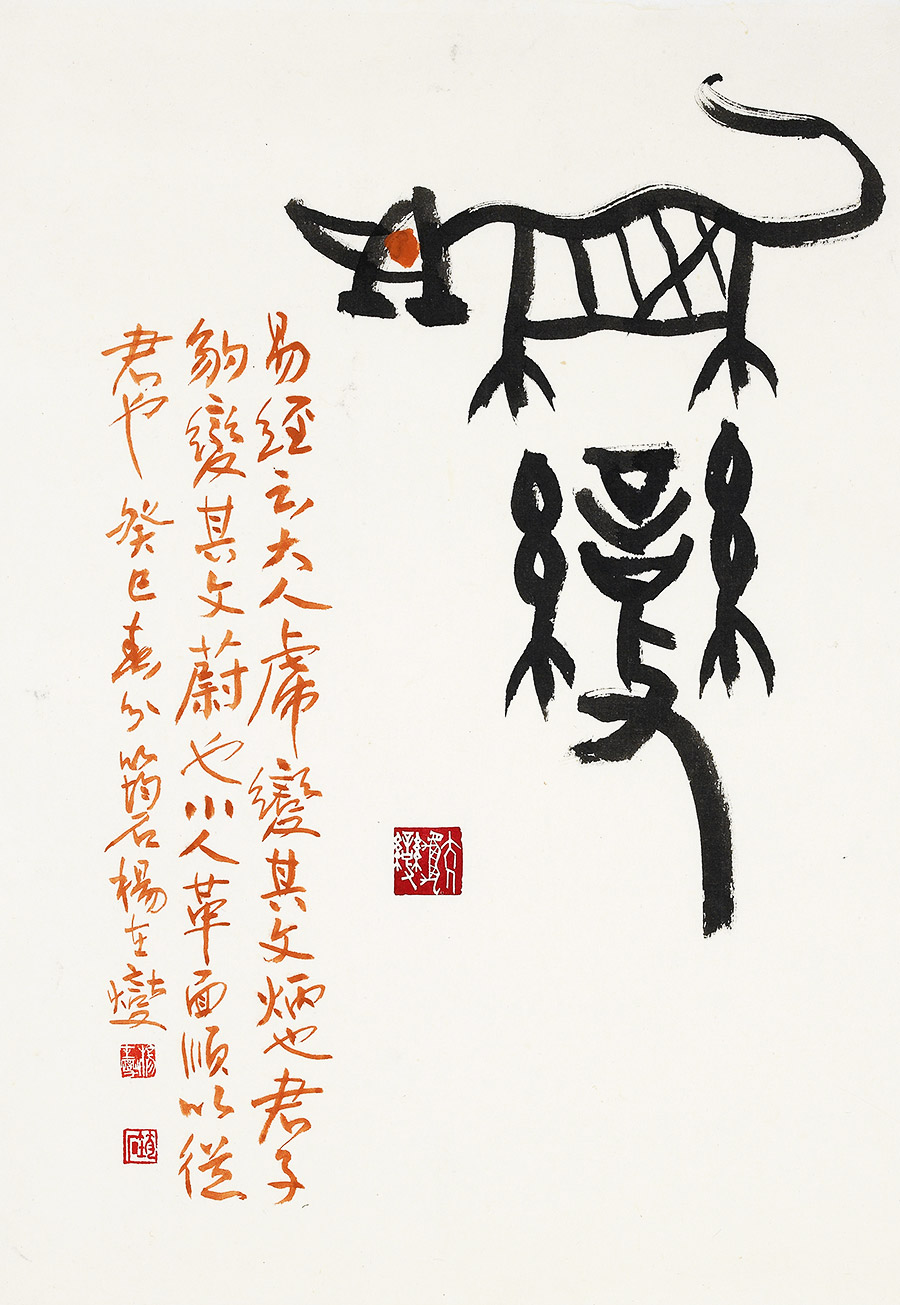 虎變
易經云大人虎變其文炳也君子
豹變其文蔚也小人革面順以從
君也 癸巳春分筠石楊在燮